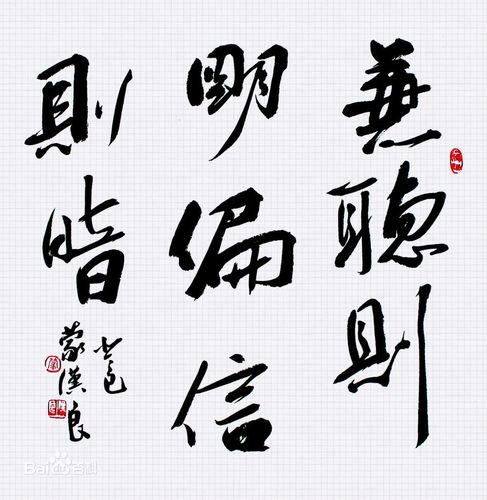 兼聽則
明偏信
則暗
蒙漢良
Bai百科